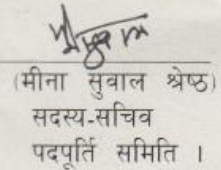 (मीना सुवाल श्रेष्ठ)
सदस्य-सचिव
पदपूर्ति समिति ।